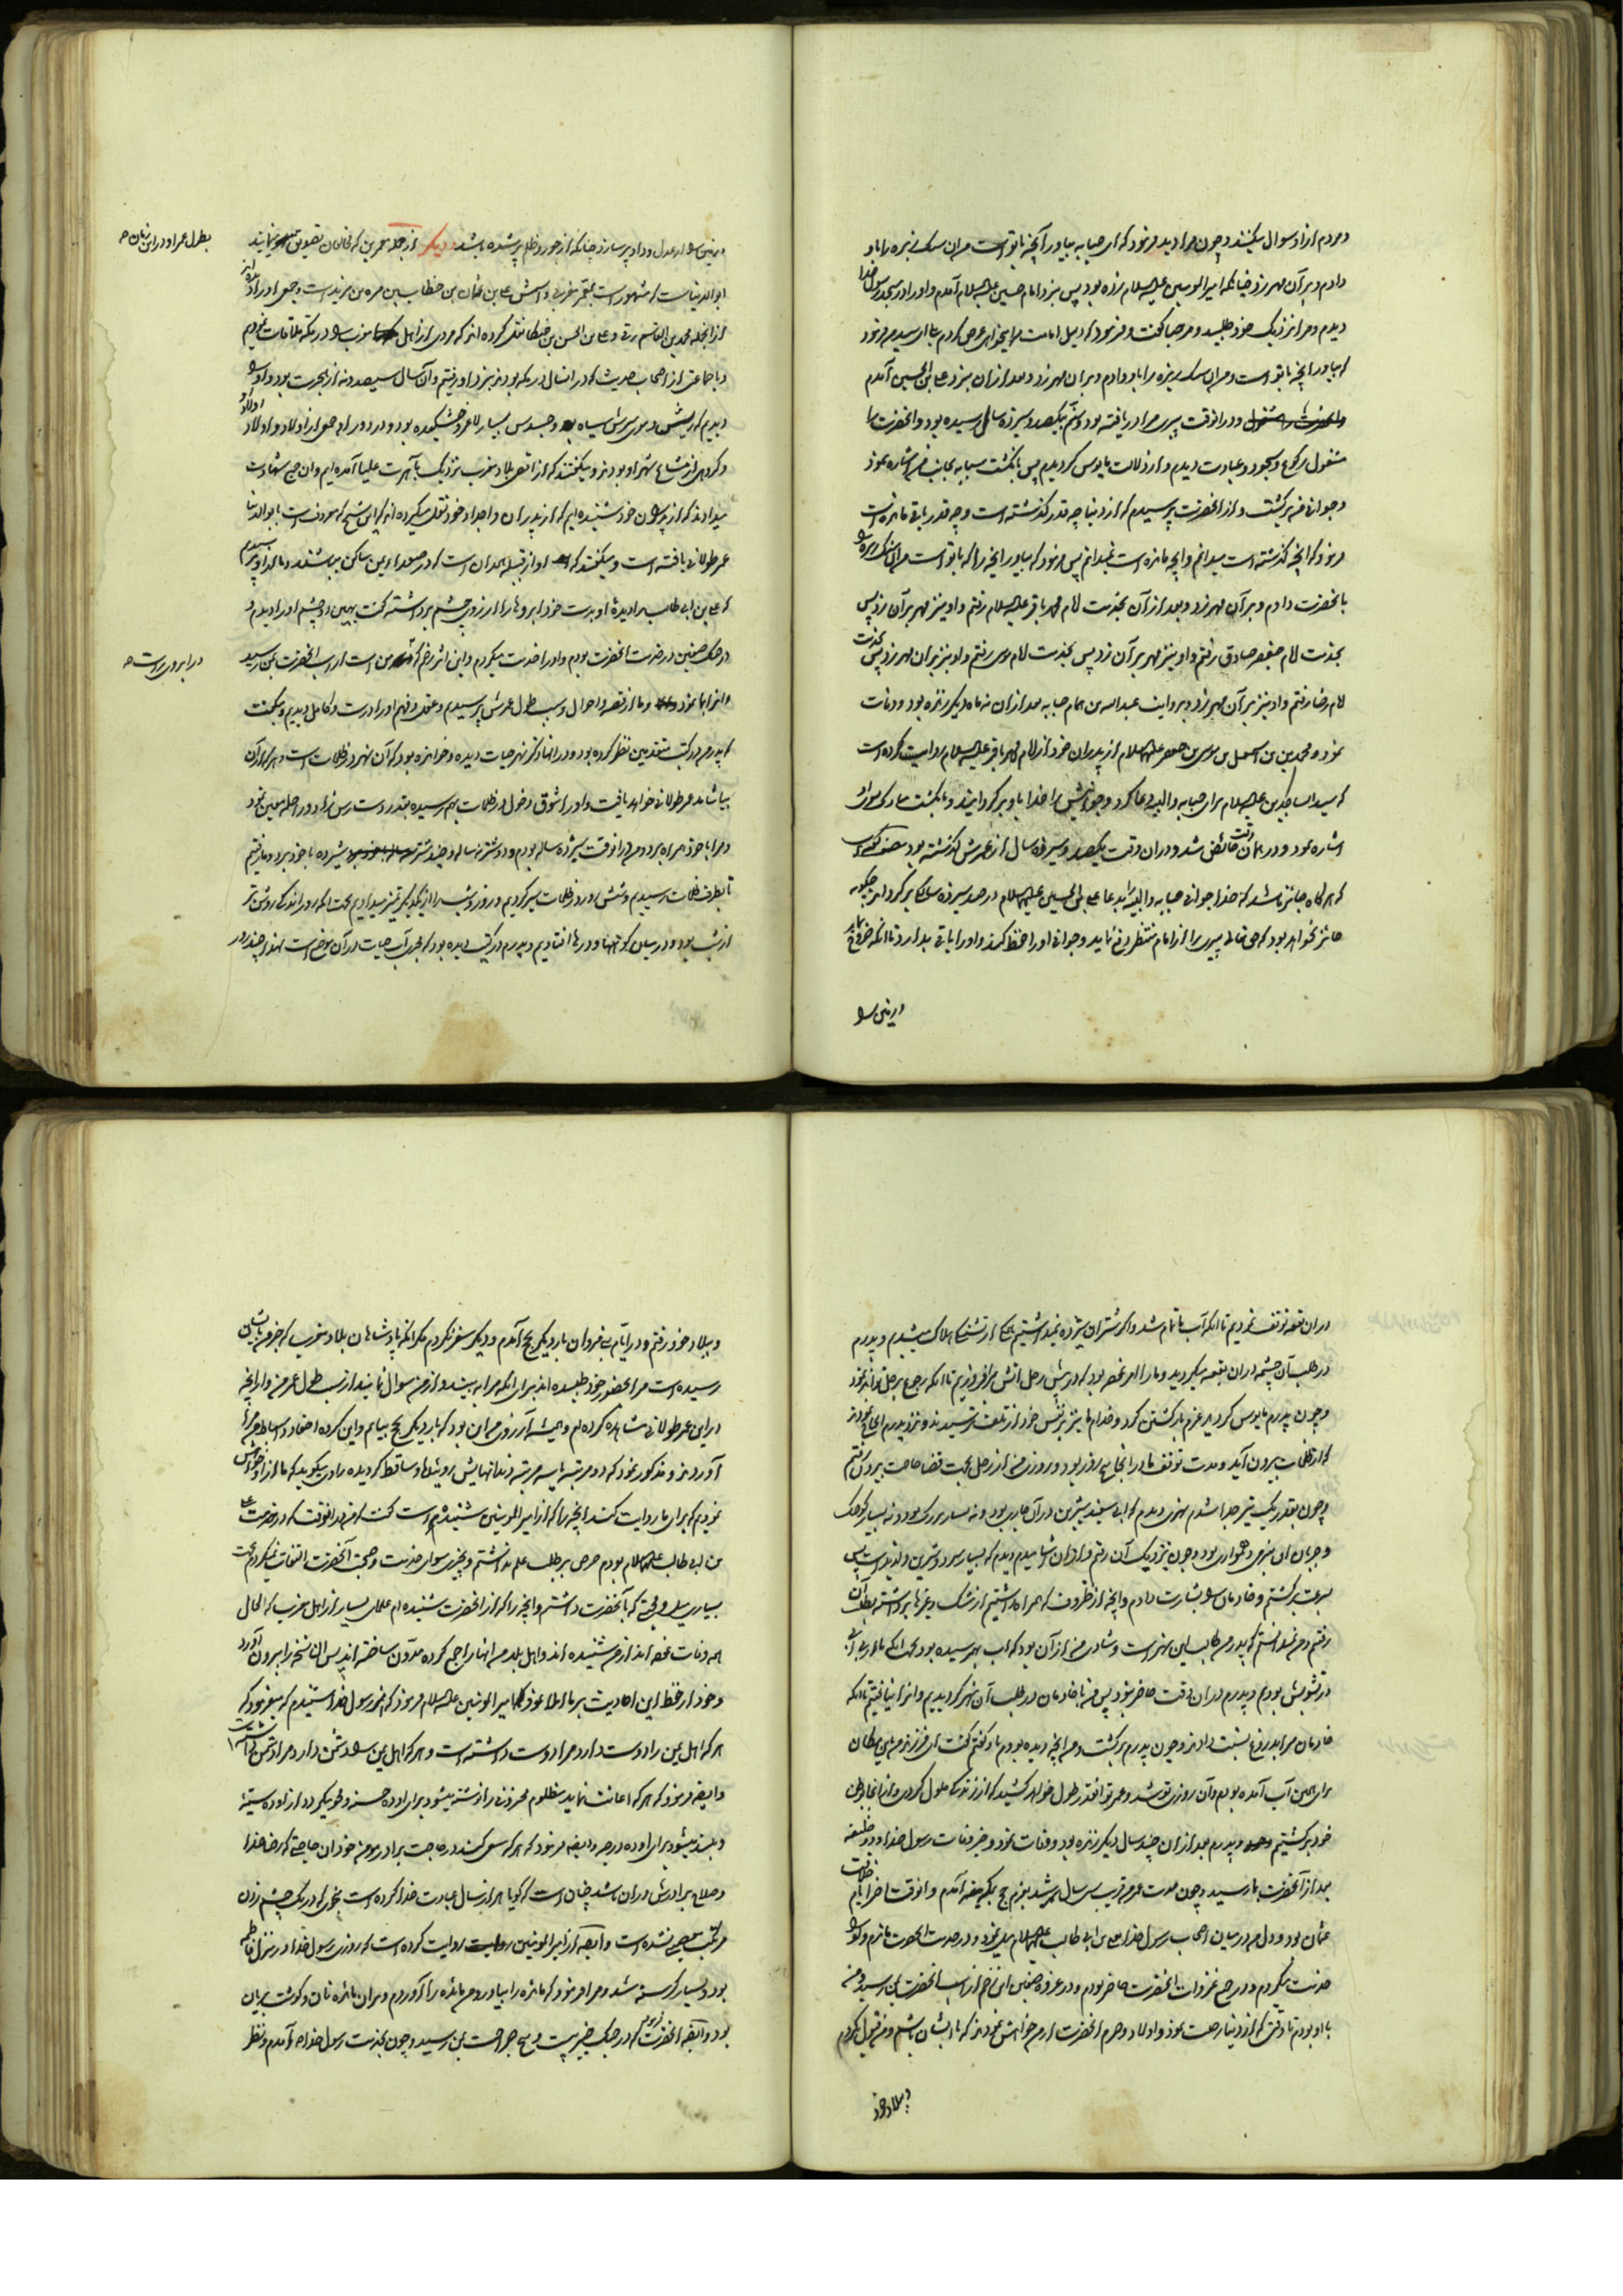 و مردم ازو سوال میکنند و چون مرا دید فرمود که ای حبابه بیاور آنچه با تو است من آن سنک ریزه را باو
دادم و بر آن مهر زد چنانکه امیر المومنین علیه السلام زده بود پس بنزد امام حسین علیه السلام آمدم و او را در مسجد رسول خدا
دیدم و مرا نزدیک خود طلبید و مرحبا گفت و فرمود که دلیل امامت مرا میخواهی عرض کردم بلی ای سید من فرمود
که بیاور آنچه با تو است و من آن سنک ریزه را باو دادم و بر آن مهر زد و بعد از آن بنزد علی بن الحسین آمدم
و در آنوقت پیری مرا دریافته بود و سنم بیکصد و سیزده سالکی رسیده بود و آنحضرت را
مشغول برکوع و سجود و عبادت دیدم و از دلالت مایوس کردیدم پس بانکشت سبابه بجانب من اشاره نمود
و جوانی من برکشت و از آنحضرت پرسیدم که از دنیا چه قدر کذشته است و چه قدر باقی مانده است
فرمود که آنچه کذشته است میدانم و آنچه مانده است نمیدانم پس فرمود که بیاور آنچه را که با تو است من آن سنک ریزه را
بآنحضرت دادم و بر آن مهر زد و بعد از آن بخدمت امام محمد باقر علیه السلام رفتم و او نیز مهر بر آن زد پس
بخدمت امام جعفر صادق رفتم و او نیز مهر بر آن زد پس بخدمت امام موسی رفتم و او نیز بر آن مهر زد پس بخدمت
امام رضا رفتم و او نیز بر آن مهر زد و بروایت عبدالله بن همام حبابه بعد از آن نه ماه دیکر زنده بود و وفات
نمود و محمد بن اسمعیل بن موسی بن جعفر علیهم السلام از پدران خود از امام محمد باقر علیه السلام روایت کرده است
که سید الساجدین علیه السلام برای حبابه والبیه دعا کرد و جوانیش را خدا باو بر کردانید و بانکشت مبارک سوی او
اشاره نمود و در همان وقت حائض شد و در آن وقت یکصد و سیزده سال از عمرش کذشته بود مصنف کوید
که هرکاه جائز باشد که خدا جوانی حبابه والبیه را بدعای علی بن الحسین علیهما السلام در صد و سیزده سالکی بر کرداند چکونه
جائز نخواهد بود که حق تعالی پیری را از امام منتظر دفع نماید و جوانی او را حفظ کند و او را باقی بدارد تا آنکه خروج نماید
و زمین را
و زمین را از عدل و داد پر سازد چنانکه از جور و ظلم پر شده باشد و دیکر از جمله معمرین که مخالفان تصدیق مینمایند
بطول عمر او در این زمان ص
ابو الدنیا است که مشهور است بمعمر مغربی و اسمش علی بن عثمان بن خطاب بن مره بن مزید است و جمعی او را دیده اند
از آنجمله محمد بن القاسم رقی و علی بن الحسن بن جنکا نقل کرده اند که مردی از اهل مغرب را در مکه ملاقات نمودیم
و با جماعتی از اصحاب حدیث که در آنسال در مکه بودند بنزد او رفتیم و آن سال سیصد و نه از هجرت بود و او را
دیدیم که ریش و موی سرش سیاه و جسدش بسیار لاغر و خشکیده بود و در دور او جمعی از اولاد و اولاد اولاد او
و کروهی از مشایخ شهر او بودند و میکفتند که از اقصی بلاد مغرب نزدیک باهرت علیا آمده ایم و این مشایخ شهادت
میدادند که از پدران خود شنیده ایم که از پدران و اجداد خود نقل میکرده اند که این شیخ که معروفست بابوالدنیا
عمر طولانی یافته است و میکفتند که او از قبیله همدان است که در صعید یمن ساکن میباشند و ما از او پرسیدیم
که علی بن ابی طالب را دیدهٔ او بدست خود ابروها را از روی چشم برداشته کفت بهمین دو چشم او را دیدم و
در جنک صفین در خدمت آنحضرت بودم و او را خدمت میکردم و این اثر زخم که من است از اسب آنحضرت بمن رسید
در ابروی راست ص
و آنرا بما نمود و ما از قصه و احوال و سبب طول عمرش پرسیدیم و عقل و فهم او را درست و کامل دیدیم و میکفت
که پدر من در کتب متقدمین نظر کرده بود و در آنها ذکر نهر حیات دیده و خوانده بود که آن نهر در ظلمات است و هر که از آن
بیاشامد عمر طولانی خواهد یافت و او را شوق دخول در ظلمات بهم رسیده بقدر دسترس زاد و راحله معین نمود
و مرا با خود همراه برد و من در آنوقت سیزده ساله بودم و دو شتر نه ساله و چند شتر شیرده با خود برد و ما رفتیم
تا بطرف ظلمات رسیدیم و شش روز در ظلمات سیر کردیم و روز و شب را از یکدیکر تمیز میدادیم بجهت آنکه روز اندکی روشن تر
از شب بود و در میان کوهها و دره ها افتادیم و پدرم در کتب دیده بود که مجری آب حیات در آن موضع است لهذا چند روز
در آن بقعه توقف نمودیم تا آنکه آب ما تمام شد و اکر شتران شیرده نمیداشتیم از تشنکی هلاک میشدیم و پدرم
در طلب آن چشمه در آن بقعه میکردید و ما را امر نموده بود که در پیش رحل آتش برافروزیم تا آنکه رجوع برحل تواند نمود
و چون پدرم مایوس کردید عزم بازکشتن کرد و خدام ما نیز بر نفس خود از تلف ترسیدند و نزد پدرم الحاح نمودند
که از ظلمات بیرون آید و مدت توقف ما در آنجا پنج روز بود و روزی من از رحل بجهت قضای حاجت بیرون رفتم
و چون بقدر یک تیر جدا شدم نهری دیدم که آبی سفید شیرین در آن جاری بود و نه بسیار بزرک بود و نه بسیار کوچک
و جریان آن بنرمی و همواری بود و چون نزدیک آن رفتم و از آن آشامیدم دیدم که بسیار سرد و شیرین و لذیذ است پس
بسرعت برکشتم و خادمان را بشارت دادم و آنچه از ظروف که همراه داشتیم از مشک و غیره برداشته بطلب آن
رفتم و من نمیدانستم که پدر من طالب این نهر است و شادی من از آن بود که آب بهم رسیده بود بجهت آنکه ما از بی آبی
در تشویش بودیم و پدرم در آن وقت حاضر نبود پس من با خادمان در طلب آن نهر کردیدیم و آنرا نیافتیم تا آنکه
خادمان مرا بدروغ نسبت دادند و چون پدرم برکشت و من آنچه دیده بودم باو کفتم کفت ای فرزند من باین مکان
برای همین آب آمده بودم و آن روزی تو شد و عمر تو آنقدر طول خواهد کشید که از زندکی ملول کردی و از آنجا بوطن
خود برکشتیم و پدرم بعد از آن چند سال دیکر زنده بود و وفات نمود و خبر وفات رسول خدا و دو خلیفه
بعد از آنحضرت بما رسید و چون مدت عمر من قریب بسی سال شد بعزم حج بمکه معظمه آمدم و آنوقت آخر ایام خلافت
عثمان بود و دل من در میان اصحاب رسول خدا بعلی بن ابی طالب علیه السلام میل نمود و در خدمت آنحضرت ماندم و او را
خدمت میکردم و در جمیع غزوات آنحضرت حاضر بودم و در غزوهٔ صفین این زخم از اسب آنحضرت بمن رسید و من
با او بودم تا وقتی که از دنیا رحلت نمود و اولاد و حرم آنحضرت از من خواهش نمودند که با ایشان باشم و من قبول نکردم
و ببلاد خود
و ببلاد خود رفتم و در ایام بنی مروان بار دیکر بحج آمدم و دیکر سفر نکردم مکر آنکه پادشاهان بلاد مغرب که خبر من بایشان
رسیده است مرا بحضور خود طلبیده اند برای آنکه مرا به بینند و از من سوال نمایند از سبب طول عمر من و از آنچه
در این عمر طولانی مشاهده کرده ام و همیشه آرزوی من این بود که بار دیکر بحج بیایم و این کروه احفاد و اسباط من مرا
آوردند و مذکور نمود که دو مرتبه یا سه مرتبه دندانهایش روئیده و ساقط کردیده راوی میکوید که ما از او خواهش
نمودیم که برای ما روایت کند آنچه را که از امیر المومنین شنیده است کفت که من در آنوقت که در خدمت علی
بن ابی طالب علیه السلام بودم حرص بر طلب علم نداشتم و بچیزی سوای خدمت و صحبت آنحضرت التفات نمیکردم بجهت
بسیاری میل و محبتی که بآنحضرت داشتم و آنچه را که از آنحضرت شنیده ام علمای بسیار از اهل مغرب که الحال
همه وفات نموده اند از من شنیده اند و اهل بلد من آنها را جمع کرده مدون ساخته اند پس آن نسخه را بیرون آورد
و خود از خط این احادیث بر ما املا نمود که امیر المومنین علیه السلام فرمود که از رسول خدا شنیدم که میفرمود که
هر که اهل یمن را دوست دارد مرا دوست داشته است و هر که اهل یمن را دشمن دارد مرا دشمن داشته است
و ایضا فرمود که هر که اعانت نماید مظلوم محزونی را نوشته میشود برای او ده حسنه و محو میکردد از او ده سیئه
و بلند میشود برای او ده درجه و ایضا فرمود که هر که سعی کند در حاجت برادر مومن خود آن حاجتی که رضای خدا
و صلاح برادرش در آن باشد چنان است که کویا هزار سال عبادت خدا کرده است بنحوی که در یک چشم زدن
مرتکب معصیتی نشده است و ایضا از امیر المومنین روایت کرده است که روزی رسول خدا در منزل فاطمه
بود و بسیار کرسنه شد و مرا فرمود که مائده را بیاور و من مائده را آوردم و بر آن مائده نان و کوشت بریان
بود و ایضا آنحضرت فرمود که در جنک خیبر بیست و پنج جراحت بمن رسید و چون بخدمت رسول خدا آمدم و نظر